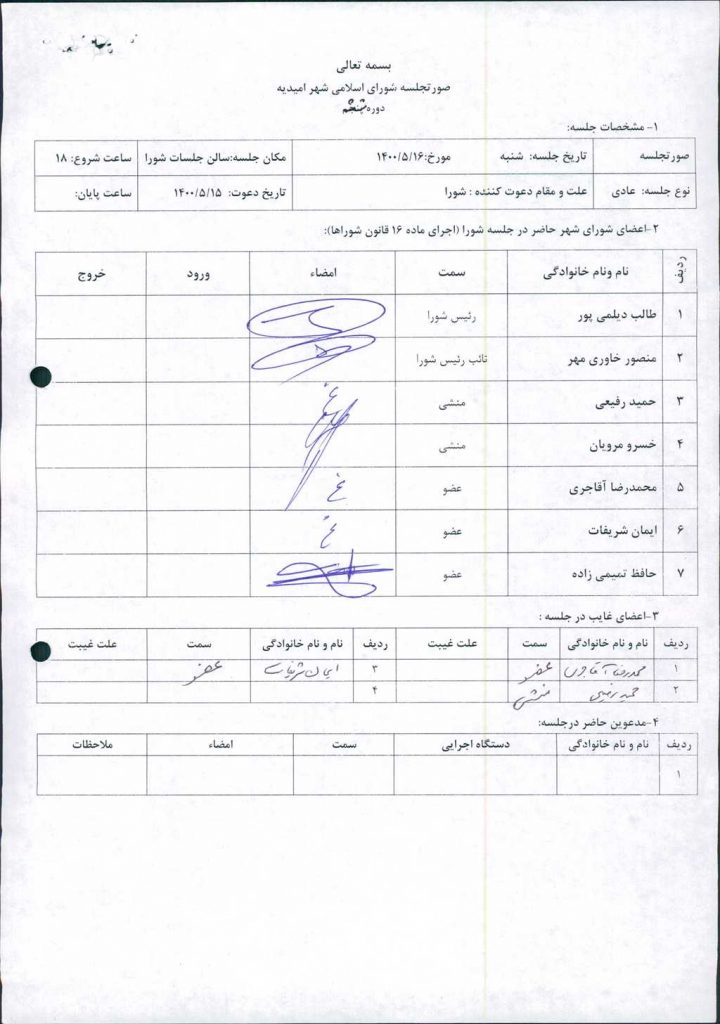 بسمه تعالی
صورتجلسه شورای اسلامی شهر امیدیه
دوره ششم
۱- مشخصات جلسه:
صورتجلسه تاریخ جلسه: شنبه مورخ:۱۴۰۰/۵/۱۶ مکان جلسه:سالن جلسات شورا ساعت شروع: ۱۸
نوع جلسه: عادی علت و مقام دعوت کننده : شورا تاریخ دعوت: ۱۴۰۰/۵/۱۵ ساعت پایان:
۲-اعضای شورای شهر حاضر در جلسه شورا (اجرای ماده ۱۶ قانون شوراها):
ردیف نام ونام خانوادگی سمت امضاء ورود خروج
۱ طالب دیلمی پور رئیس شورا
۲ منصور خاوری مهر نائب رئیس شورا
۳ حمید رفیعی منشی غ
۴ خسرو مرویان منشی
۵ محمدرضا آقاجری عضو غ
۶ ایمان شریفات عضو غ
۷ حافظ تمیمی زاده عضو
۳-اعضای غایب در جلسه :
ردیف نام و نام خانوادگی سمت علت غیبت ردیف نام و نام خانوادگی سمت علت غیبت
۱ محمدرضا آقاجری عضو ۳ ایمان شریفات عضو
۲ حمید رفیعی منشی ۴
۴-مدعوین حاضر درجلسه:
ردیف نام و نام خانوادگی دستگاه اجرایی سمت امضاء ملاحظات
۱